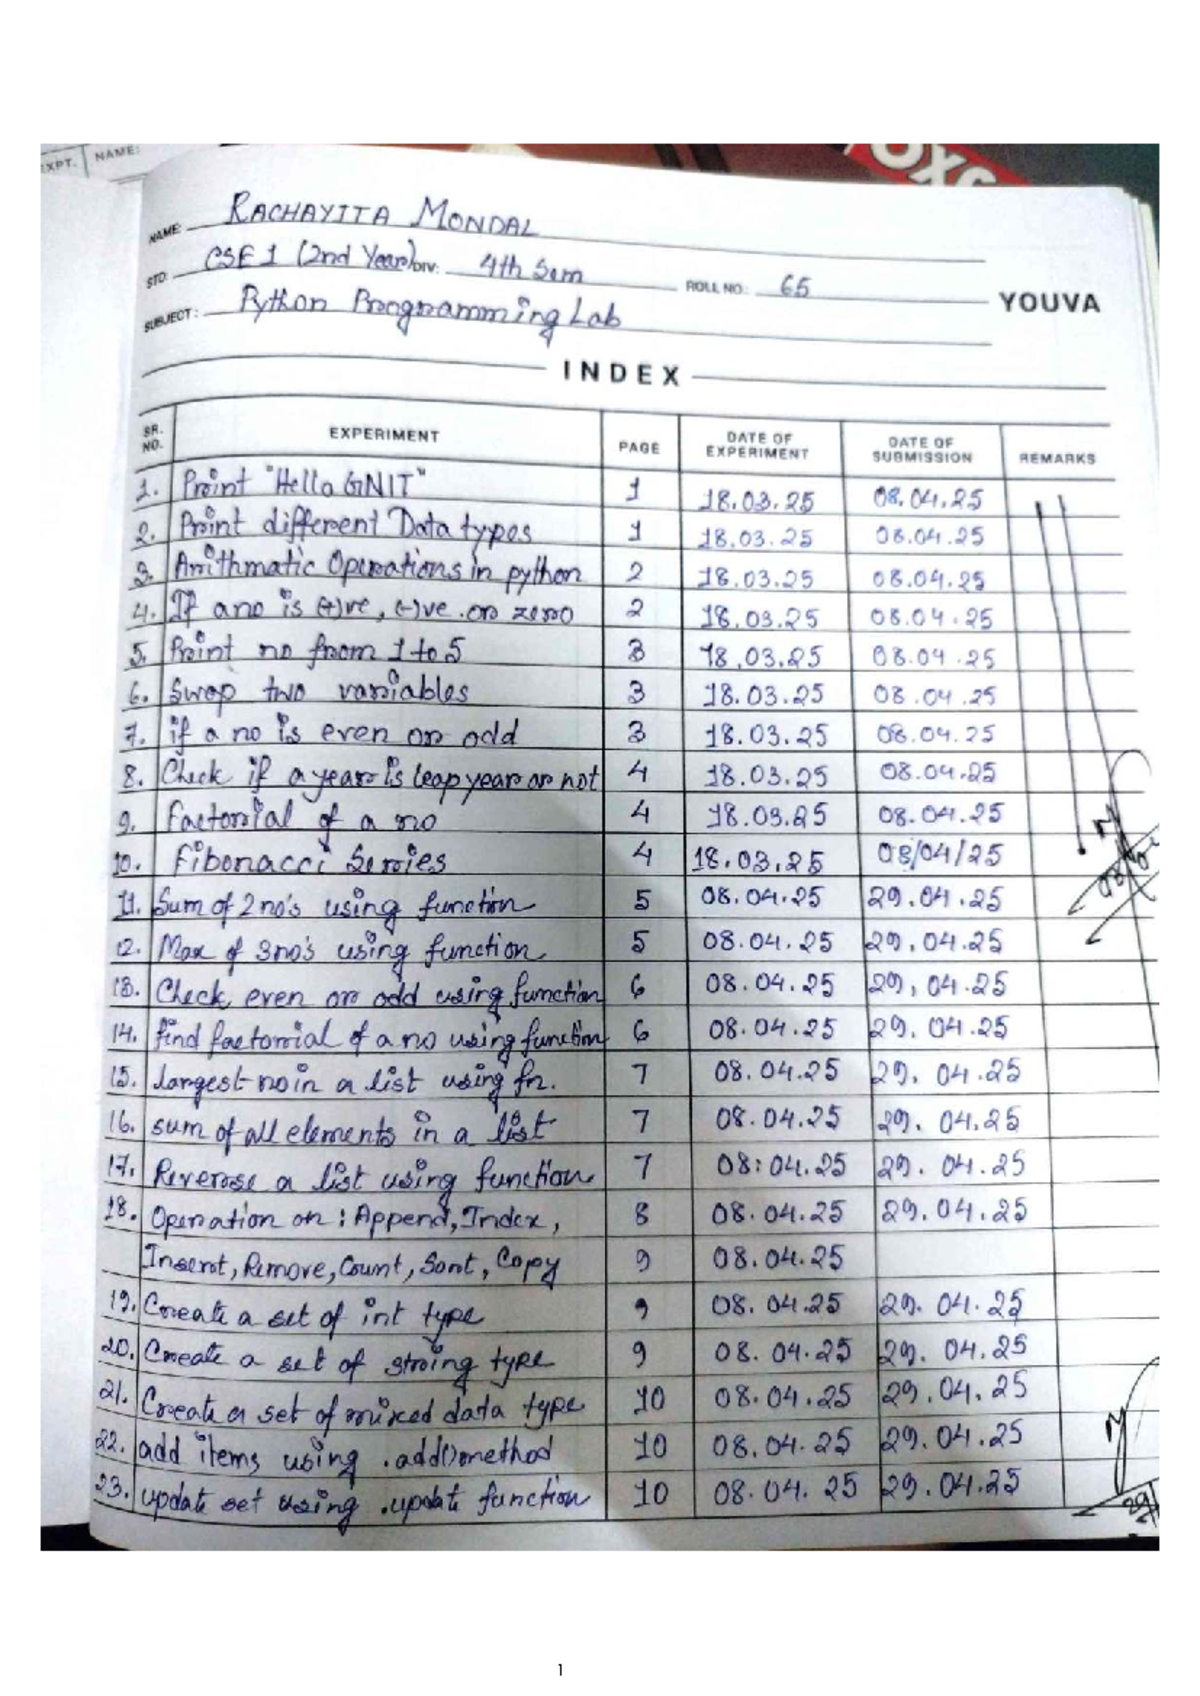 EXPT. NAME:
OXC
NAME: RACHAYITA MONDAL
STD: CSE 1 (2nd Year) DIV: 4th Sem ROLL NO.: 65
SUBJECT: Python Programming Lab YOUVA
INDEX
SR. NO. EXPERIMENT PAGE DATE OF EXPERIMENT DATE OF SUBMISSION REMARKS
1. Print "Hello GNIT" 1 18.03.25 08.04.25
2. Print different Data types 1 18.03.25 08.04.25
3. Arithmatic Operations in python 2 18.03.25 08.04.25
4. If a no is (+)ve, (-)ve. or zero 2 18.03.25 08.04.25
5. Print no from 1 to 5 3 18.03.25 08.04.25
6. Swap two variables 3 18.03.25 08.04.25
7. if a no is even or odd 3 18.03.25 08.04.25
8. Check if a year is leap year or not 4 18.03.25 08.04.25
9. Factorial of a no 4 18.03.25 08.04.25
10. Fibonacci Series 4 18.03.25 08/04/25
11. Sum of 2 no's using function 5 08.04.25 29.04.25
12. Max of 3 no's using function 5 08.04.25 29.04.25
13. Check even or odd using function 6 08.04.25 29.04.25
14. find factorial of a no using function 6 08.04.25 29.04.25
15. largest no in a list using fn. 7 08.04.25 29.04.25
16. sum of all elements in a list 7 08.04.25 29.04.25
17. Reverse a list using function 7 08:04.25 29.04.25
18. Operation on : Append, Index, 8 08.04.25 29.04.25
Insert, Remove, Count, Sort, Copy 9 08.04.25
19. Create a set of int type 9 08.04.25 29.04.25
20. Create a set of string type 9 08.04.25 29.04.25
21. Create a set of mixed data type 10 08.04.25 29.04.25
22. add items using .add() method 10 08.04.25 29.04.25
23. update set using .update function 10 08.04.25 29.04.25
1